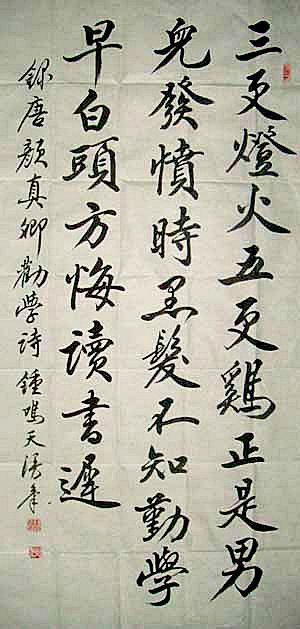 三更燈火五更鷄正是男
兒發憤時黑髮不知勤學
早白頭方悔讀書遲
録唐顏真卿勸學詩 鍾鳴天